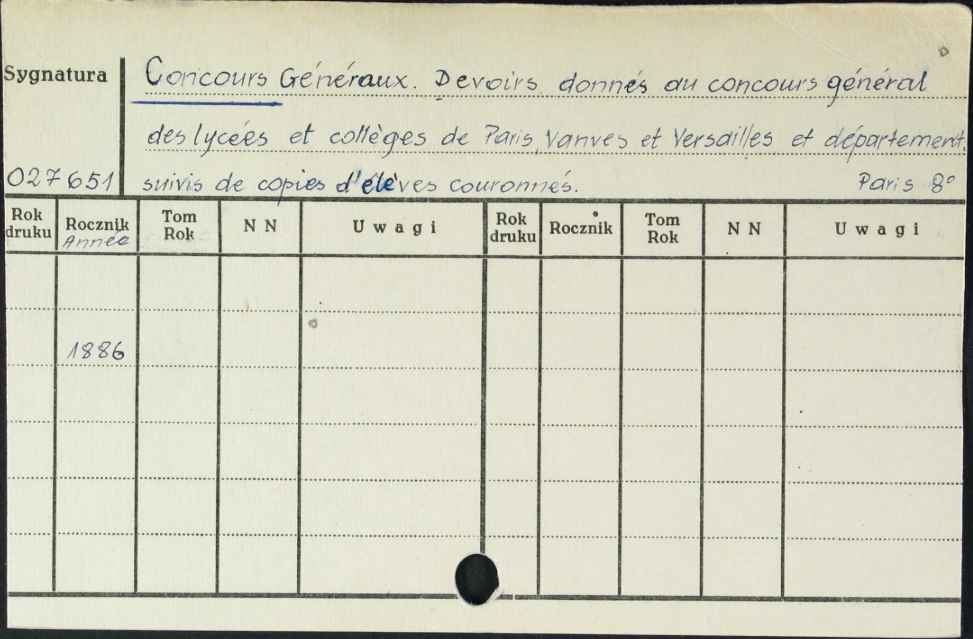 Sygnatura
Concours Généraux. Devoirs donnés au concours général
des lycées et collèges de Paris, Vanves et Versailles et département.
027651
suivis de copies d'élèves couronnés. Paris 8°
Rok druku Rocznik Année Tom Rok N N Uwagi Rok druku Rocznik Tom Rok N N Uwagi
1886